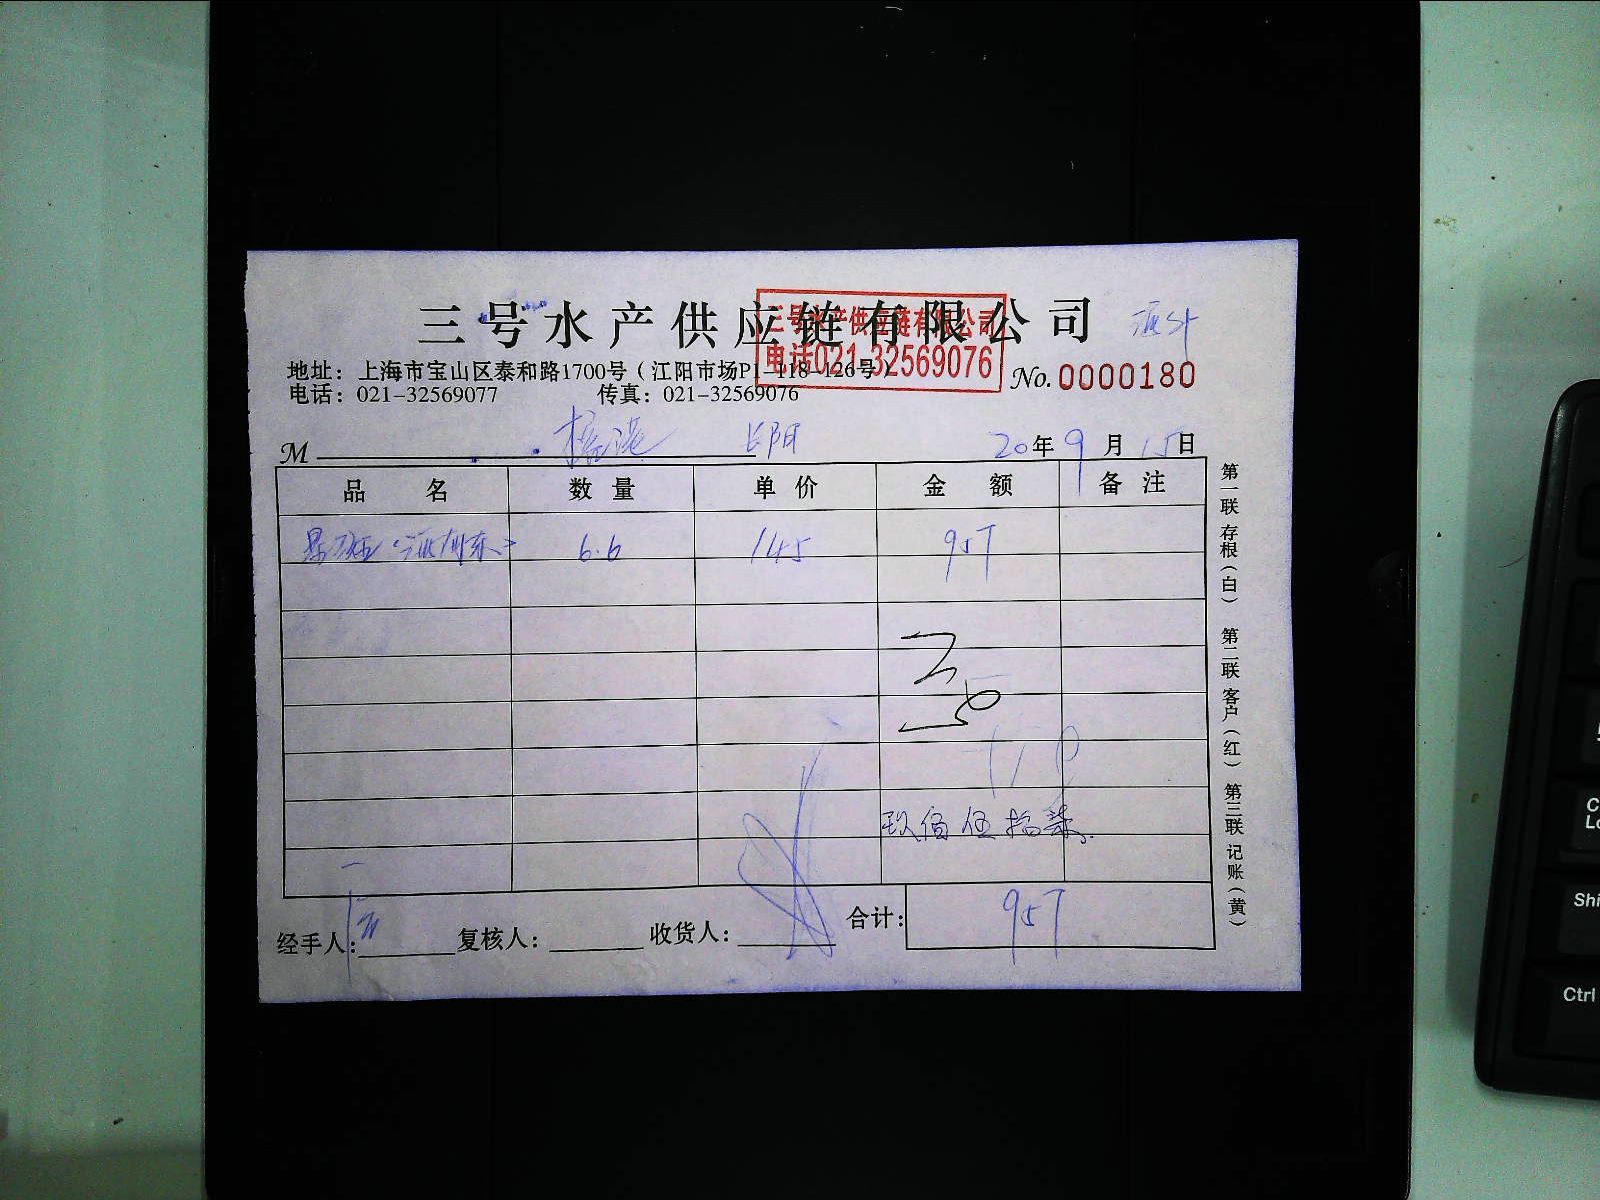 三号水产供应链有限公司
三号水产供应链有限公司
电话021-32569076
地址：上海市宝山区泰和路1700号（江阳市场P1-118-126号）
电话：021-32569077 传真：021-32569076
No. 0000180
M 长阳 20年9月15日
品名 数量 单价 金额 备注
6.6 145 957
玖佰伍拾柒
经手人： 复核人： 收货人： 合计：957
第一联 存根（白） 第二联 客户（红） 第三联 记账（黄）
Shi
Ctrl